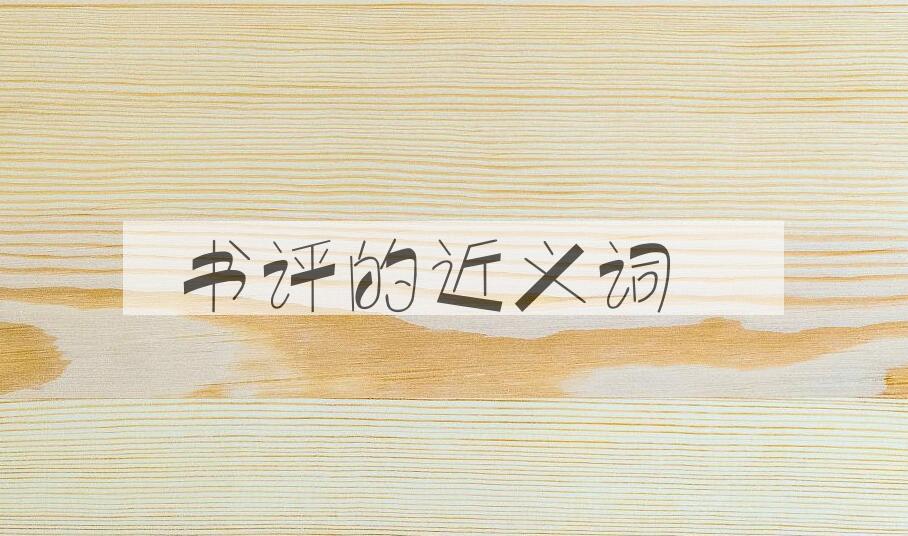 书评的近义词